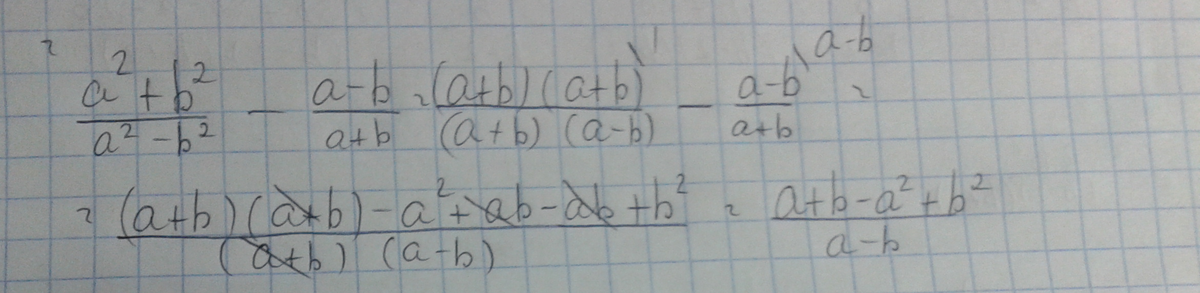 = (a² + b²)/(a² - b²) - (a-b)/(a+b) = (a+b)(a+b)\¹/(a+b)(a-b) - (a-b)\ᵃ⁻ᵇ/(a+b) =
= ((a+b)(a+b) - a² + ab - ab + b²)/((a+b)(a-b)) = (a+b-a²+b²)/(a-b)